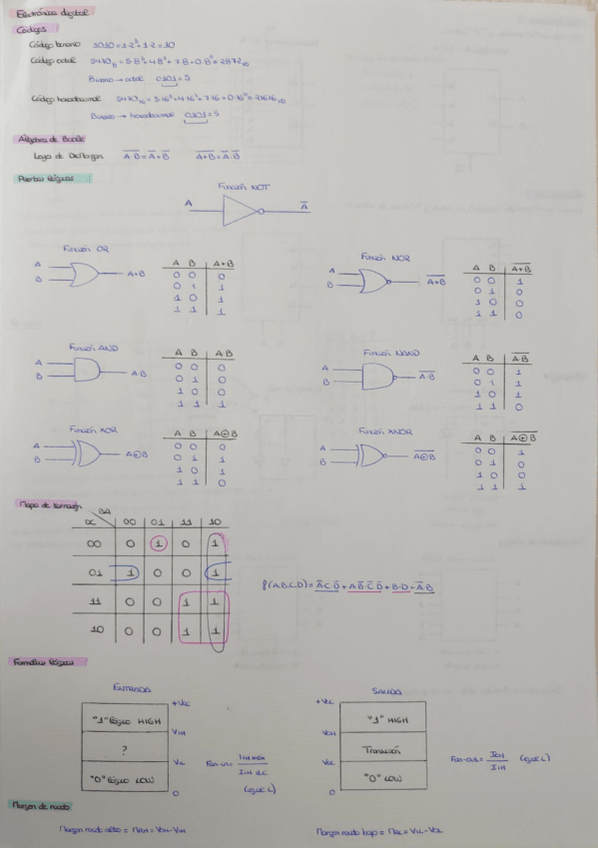 Electrónica digital
Códigos
Código binario 1010=1·2³+1·2=10
Código octal 5470₈=5·8³+4·8²+7·8+0·8⁰=2872₁₀
Binario → octal 0101=5
Código hexadecimal 5470₁₆=5·16³+4·16²+7·16+0·16⁰=21616₁₀
Binario → hexadecimal 0101=5
Álgebra de Boole
Leyes de DeMorgan A̅·̅B̅=A̅+B̅ A̅+̅B̅=A̅·B̅
Puertas lógicas
Función NOT
A A̅
Función OR
A
B
A+B
A B A+B
0 0 0
0 1 1
1 0 1
1 1 1
Función NOR
A
B
A̅+̅B̅
A B A̅+̅B̅
0 0 1
0 1 0
1 0 0
1 1 0
Función AND
A
B
A·B
A B A·B
0 0 0
0 1 0
1 0 0
1 1 1
Función NAND
A
B
A̅·̅B̅
A B A̅·̅B̅
0 0 1
0 1 1
1 0 1
1 1 0
Función XOR
A
B
A⊕B
A B A⊕B
0 0 0
0 1 1
1 0 1
1 1 0
Función XNOR
A
B
A̅⊕̅B̅
A B A̅⊕̅B̅
0 0 1
0 1 0
1 0 0
1 1 1
Mapa de Karnaugh
BA
DC 00 01 11 10
00 0 1 0 1
01 1 0 0 1
11 0 0 1 1
10 0 0 1 1
f(A,B,C,D)=A̅CD̅+AB̅C̅D̅+B·D+A̅B
Familias lógicas
ENTRADA
+Vcc
"1" lógico HIGH
VIH
?
VIL
"0" lógico LOW
0
(igual L)
SALIDA
+Vcc
"1" HIGH
VOH
Transición
VOL
"0" LOW
0
Fan-out= IOH/IIH (igual L)
Margen de ruido
Margen ruido alto = MRH= VOH-VIH
Margen ruido bajo = MRL= VIL-VOL